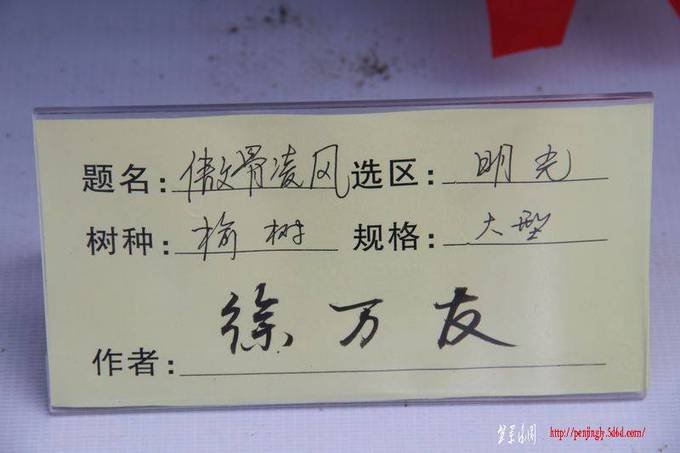 题名：傲骨凌风 选区：明光
树种：榆树 规格：大型
作者：徐万友
http://penjingly.5d6d.com/